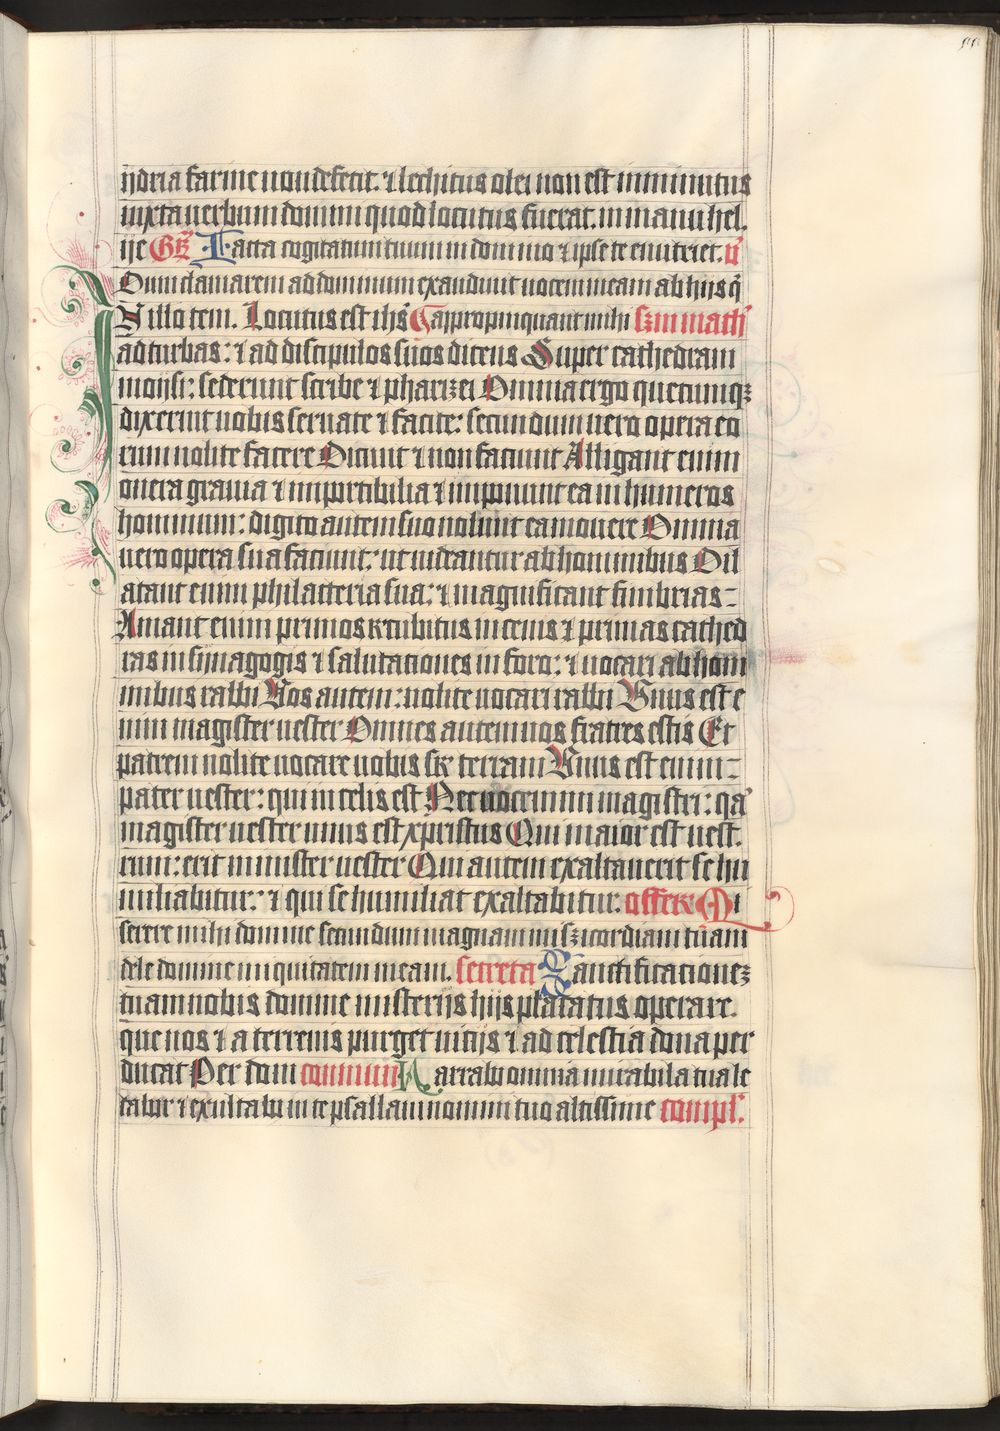 ijdria farine non defecit: ⁊ lechitus olei non est imminutus
iuxta uerbum domini quod locutus fuerat. in manu hel.
ije Gr̄ Iacta cogitatum tuum in domino ⁊ ipse te enutriet. v̄
Dum clamarem ad dominum exaudiuit uocem meam ab hijs q̄
N illo tem. Locutus est ihs̄ appropinquant mihi scd̄m math̄
ad turbas: ⁊ ad discipulos suos dicens Super cathedram
moijsi: sederunt scribe ⁊ pharizei Omnia ergo quecunqꝫ
dixerint uobis seruate ⁊ facite: secundum uero opera eo
rum nolite facere Dicunt ⁊ non faciunt Alligant enim
onera grauia ⁊ importibilia ⁊ imponunt ea in humeros
hominum: digito autem suo nolunt ea mouere Omnia
uero opera sua faciunt: ut uideantur ab hominibus Dil
atant enim philacteria sua: ⁊ magnificant fimbrias
Amant enim primos recubitus in cenis ⁊ primas cathed
ras in sijnagogis ⁊ salutationes in foro: ⁊ uocari ab hom
inibus rabbi Uos autem: nolite uocari rabbi Unus est e
nim magister uester Omnes autem uos fratres estis Et
patrem nolite uocare uobis sꝑ terram Unus est enim
pater uester: qui in celis est Nec uocemini magistri: qa
magister uester unus est xpristus Qui maior est uest.
rum: erit minister uester Qui autem exaltauerit se hu
miliabitur: ⁊ qui se humiliat exaltabitur. offere Mi
serere mihi domine secundum magnam misericordiam tuam
dele domine iniquitatem meam. secreta Sanctificationeꝫ
tuam nobis domine misterijs hijs placatus operare.
que nos ⁊ a terrenis purget uicijs ⁊ ad celestia dona per
ducat Per dom comuni Narrabo omnia mirabila tua le
tabor ⁊ exultabo in te psallam nomini tuo altissime compl̄.